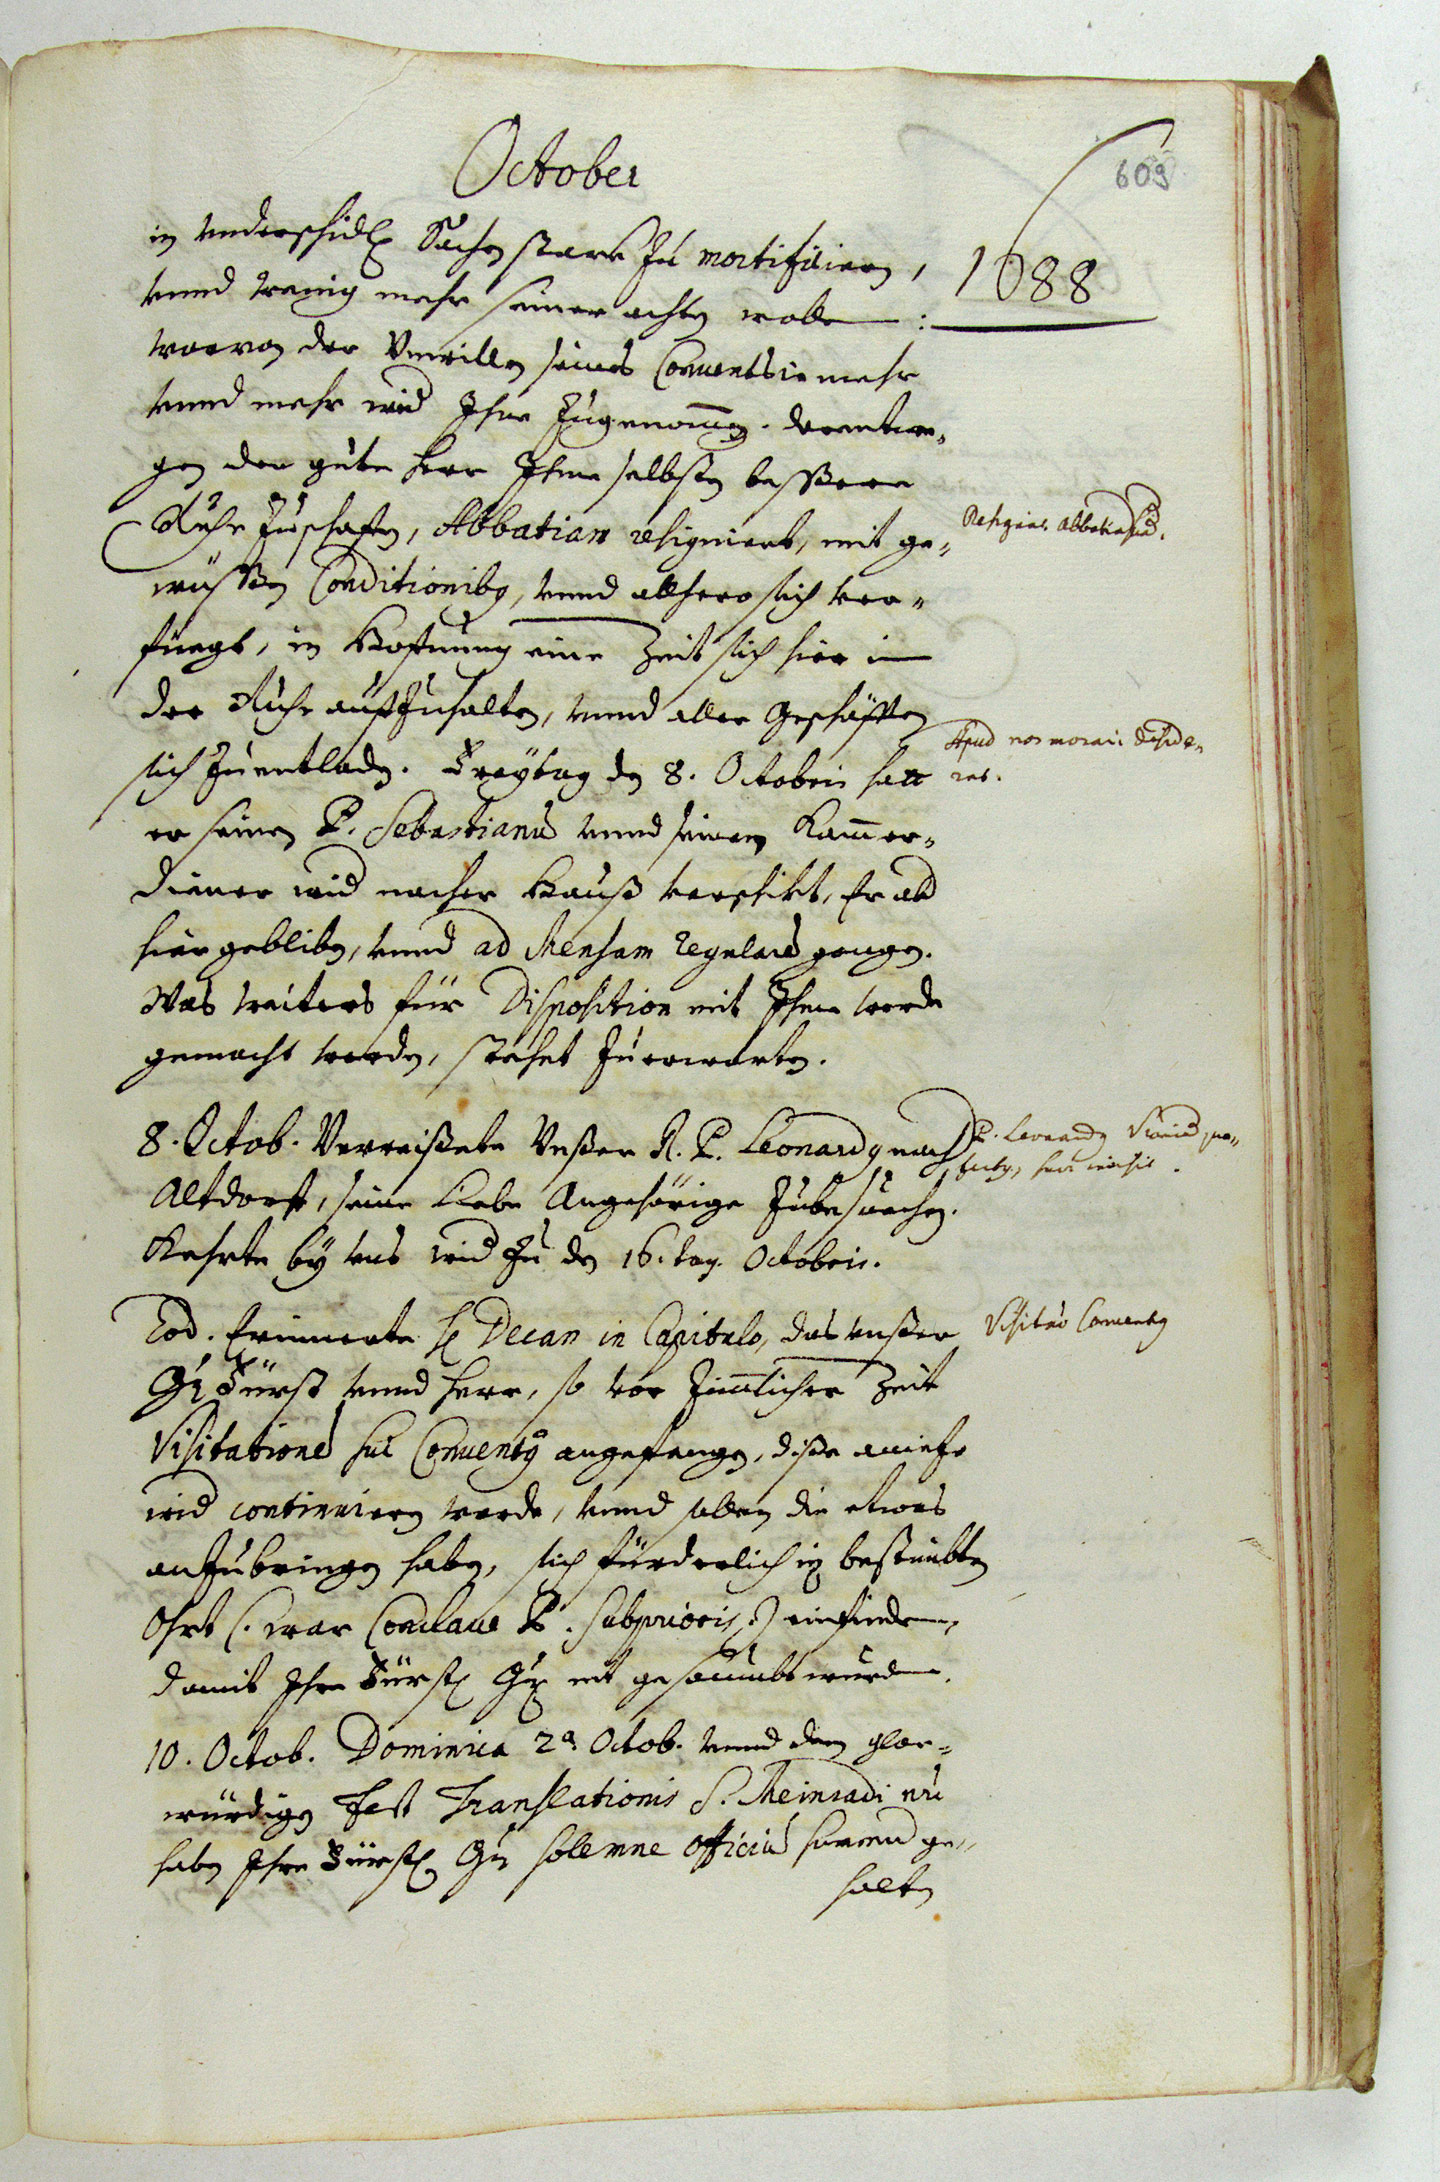 October
609
1688
in underschidl. Sachen starkh zu mortificieren,
unnd wenig mehr seiner achten wollen:
worvon der Unwillen seines Conuents ie mehr
unnd mehr wid Ihne zugenom̄en. derentwe-
gen der gute Herr Ihme selbsten bessere
Ruhe zuschaffen, Abbatiam resigniert, mit ge-
wüssen Conditionibq, unnd allhero sich ver-
füegt, in Hoffnung eine Zeit sich hier in
der Ruhe auffzuhalten, unnd aller Geschäfften
sich zuentladen. Freytag den 8. Octobris hatt
er seinen P. Sebastianū unnd seinen Kam̄er-
diener wid nacher Hauß verschikt, Er abd
hier gebliben, unnd ad Mensam regularē gangen.
Was weiters für Disposition mit Ihme werde
gemacht werden, stehet zuerwarten.
Resignat Abbatiā suā.
Apud nos morari deside-
rat.
8. Octob. Verreißete Unßer R. P. Leonardq nach
Altdorff, seine liebe Angehörige zubesuechen.
Kehrte by uns wid zu den 16. tag Octobris.
P. Leonardq
Eod. Erinnerte H. Decan in Capitulo, das unßer
Gn Fürst unnd Herr, so vor zim̄licher Zeit
Visitationē sui Conuentq angefangen, dise aniezo
wid continuieren werde, unnd sollen die etwas
anzubringen haben, sich fürderlich in bestimbten
Ohrt (. war Conclaue P. Subprioris .) einfinden,
damit Ihr Fürstl. Gn nit gesaumbt wurden.
Visitaō Conuentq
10. Octob. Dominica 2a Octob. unnd dem glor-
würdigen Fest Translationis S. Meinradi
haben Ihr Fürstl. Gn solemne officiū sum̄um ge-
halten